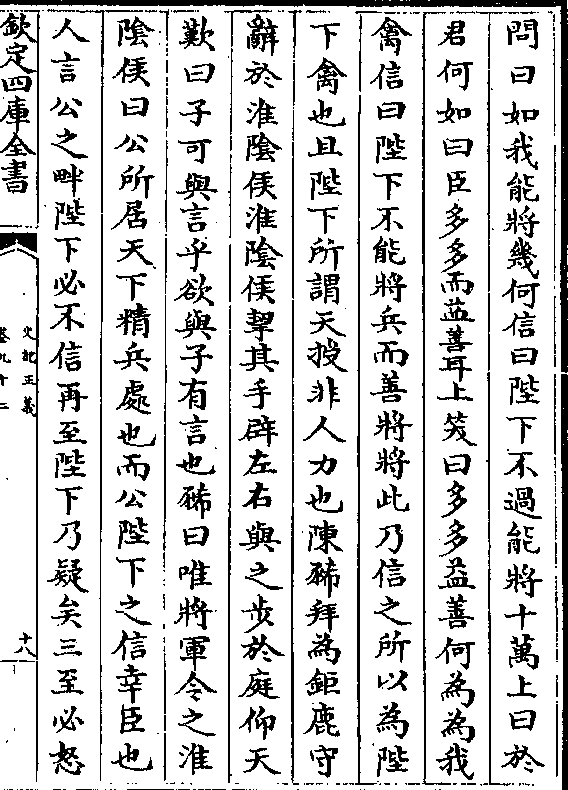 問曰如我能將幾何信曰陛下不過能將十萬上曰於
君何如曰臣多多而益善耳上笑曰多多益善何為為我
禽信曰陛下不能將兵而善將將此乃信之所以為陛
下禽也且陛下所謂天授非人力也陳豨拜為鉅鹿守
辭於淮陰侯淮陰侯挈其手辟左右與之步於庭仰天
歎曰子可與言乎欲與子有言也豨曰唯將軍令之淮
陰侯曰公所居天下精兵處也而公陛下之信幸臣也
人言公之畔陛下必不信再至陛下乃疑矣三至必怒
欽定四庫全書
史記正義
卷九十二
十八